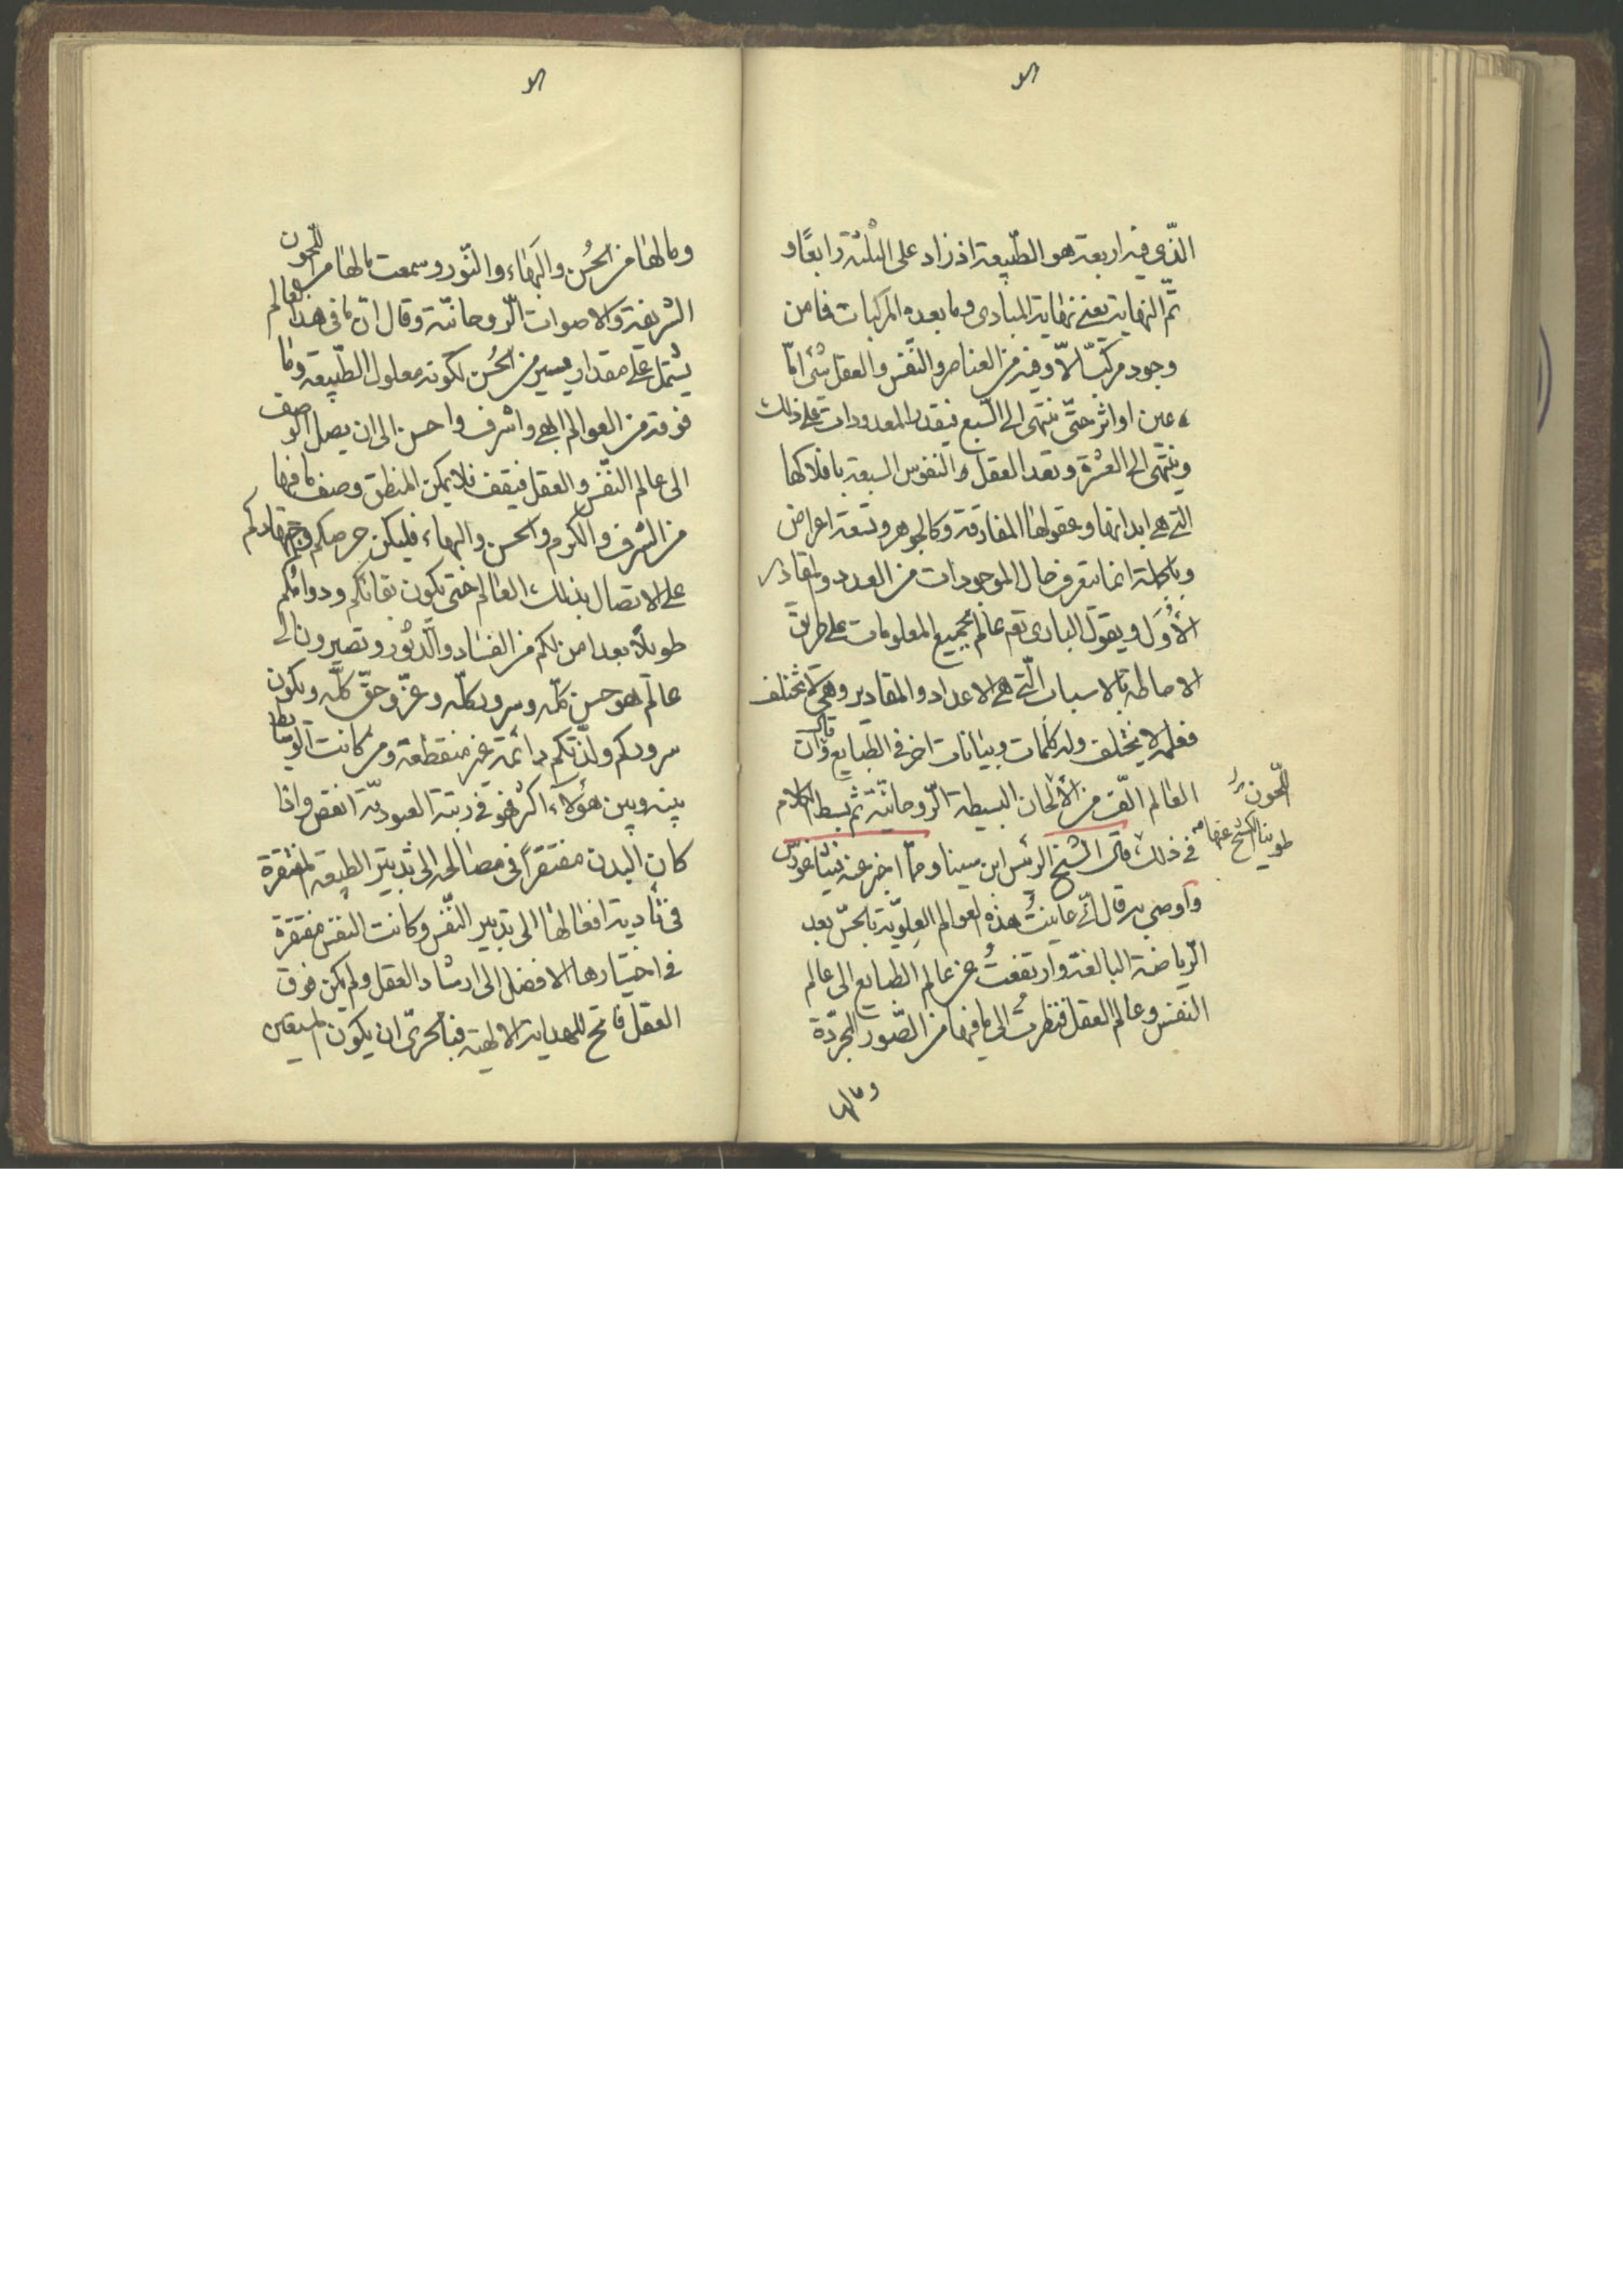 الذي فيه اربعة هو الطبيعة اذ زاد على الثلثة رابعًا و
ثم النهاية يعني نهاية المبادى وما بعده المركبات فما من
وجود مركب الّا وفيه من العناصر والنّفس والعقل شئ امّا
عين او اثر حتّى ينتهى الى السّبع فيقدر المعدودات على ذلك
وينتهى الى العشرة وتعد العقل والنفوس السبعة بافلاكها
التي هي ابدانها وعقولها المفارقة وكالجوهر وتسعة اعراض
وبالجملة انما يتعرف حال الموجودات من العدد والمقادير
الأُوَل ويقول البارى تعم عالم بجميع المعلومات على طريق
الاحاطة بالاسباب الّتي هي الاعداد والمقادير وهي لا تختلف
فعلمه لا يختلف وله كلمات وبيانات اخر فى الطبايع قال وانّ
العالم الّف من الألحان البسيطة الرّوحانيّة ثم بسط الكلام
اللحون
فى ذلك قال الشيخ الرئيس ابن سينا وممّا اخبر عنه فيثاغورس
وأوصى به قال انّى عاينتُ هذه العوالم العِلويّة بالحسّ بعد
الرّياضة البالغة وارتفعتُ عن عالم الطبايع الى عالم
النفس وعالم العقل فنظرتُ الى ما فيها من الصّور المجرّدة
وما لها
وما لها من الحُسن والبهاء والنّور وسمعت ما لها من اللحون
الشريفة والاصوات الرّوحانيّة وقال انّ ما فى هذا العالم
يشتمل على مقدار يسير من الحُسن لكونه معلول الطّبيعة وما
فوقه من العوالم ابهى واشرف واحسن الى ان يصل الوصف
الى عالم النّفس والعقل فيقف فلا يمكن المنطق وصف ما فيها
من الشرف والكرم والحسن والبهاء فليكن حرصكم واجتهادكم
على الاتصال بذلك العالم حتى يكون بقائكم ودوامكم
طويلاً بعد امن لكم من الفساد والدّثور وتصيرون الى
عالم هو حسن كلّه وسرور كلّه وعزّ وحقّ كلّه ويكون
سروركم ولذّتكم دائمة غير منقطعة ومن كانت الوسائط
بينه وبين هؤلاء اكثر فهو فى رتبة العبوديّة انقص واذا
كان البدن مفتقرًا فى مصالحه الى تدبير الطبيعة مفتقرة
فى تأدية افعالها الى تدبير النّفس وكانت النفس مفتقرة
فى اختيارها الافضل الى ارشاد العقل ولم يكن فوق
العقل فاتح الهداية الالهية فبالحرىّ ان يكون المستعين